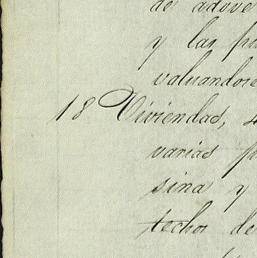 de adove
y las pu
valuandose
18 Viviendas, 4
varias p
sina y
techos de